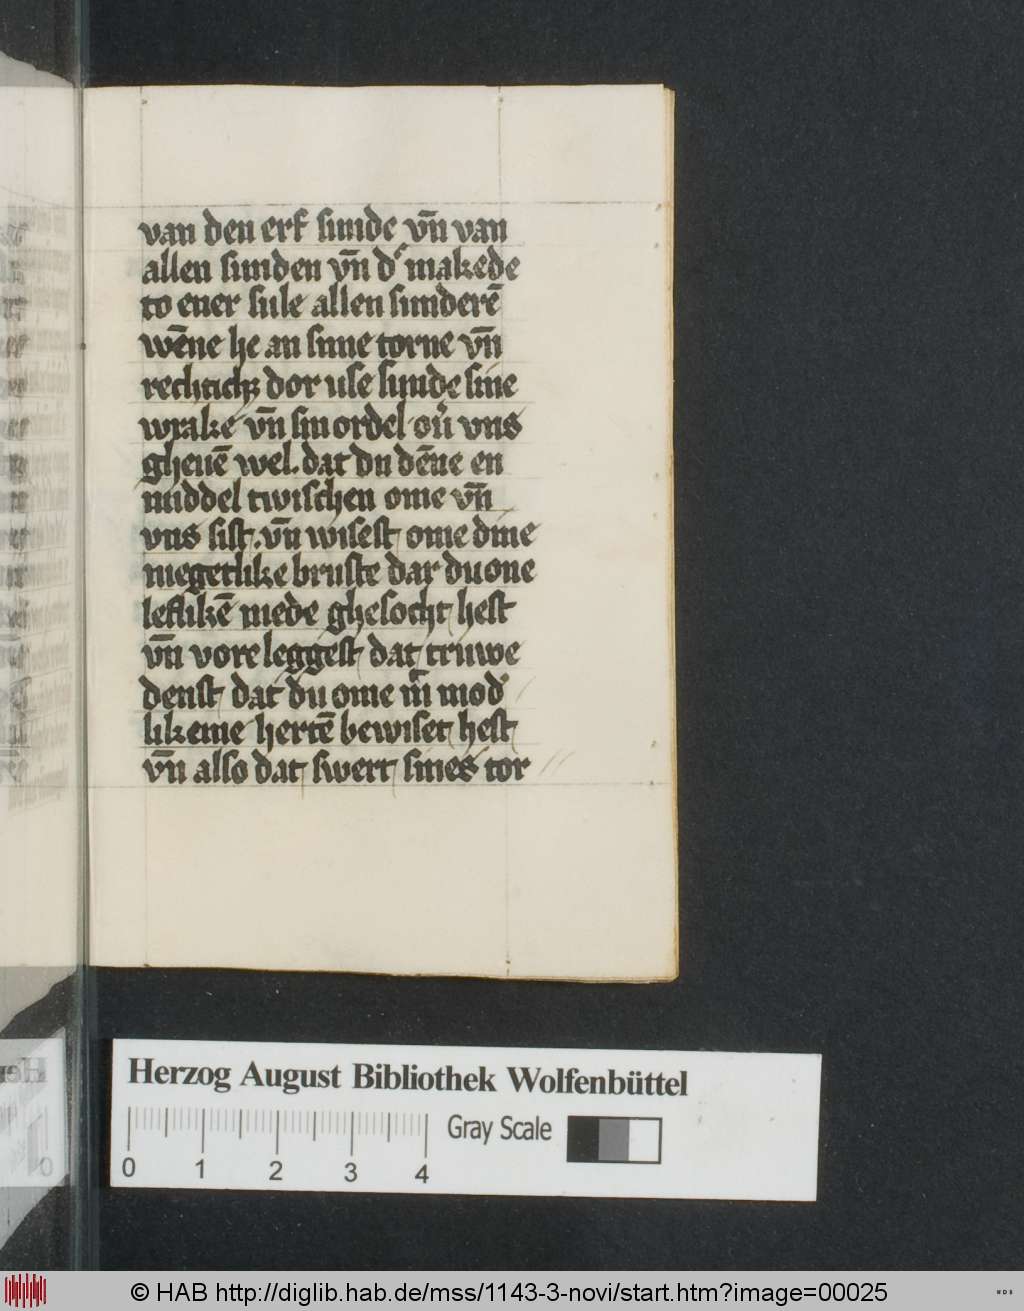 van den erf sunde vn̄ van
allen sunden vn̄ dͬ makede
to ener sule allen sunderē
wēne he an sinne torne vn̄
dor use sunde sine
wrake vn̄ sin ordel ou̅ vns
gheuē wel. dat du dēne en
middel twischen ome vn̄
vns sist. vn̄ wisest ome dine
megetlike bruste dar du one
leflikē mede ghesocht hest
vn̄ vore leggest dat truwe
denst dat du ome mod
likeme hertē bewiset hest
vn̄ also dat swert sines tor
Herzog August Bibliothek Wolfenbüttel
Gray Scale
0 1 2 3 4
© HAB http://diglib.hab.de/mss/1143-3-novi/start.htm?image=00025